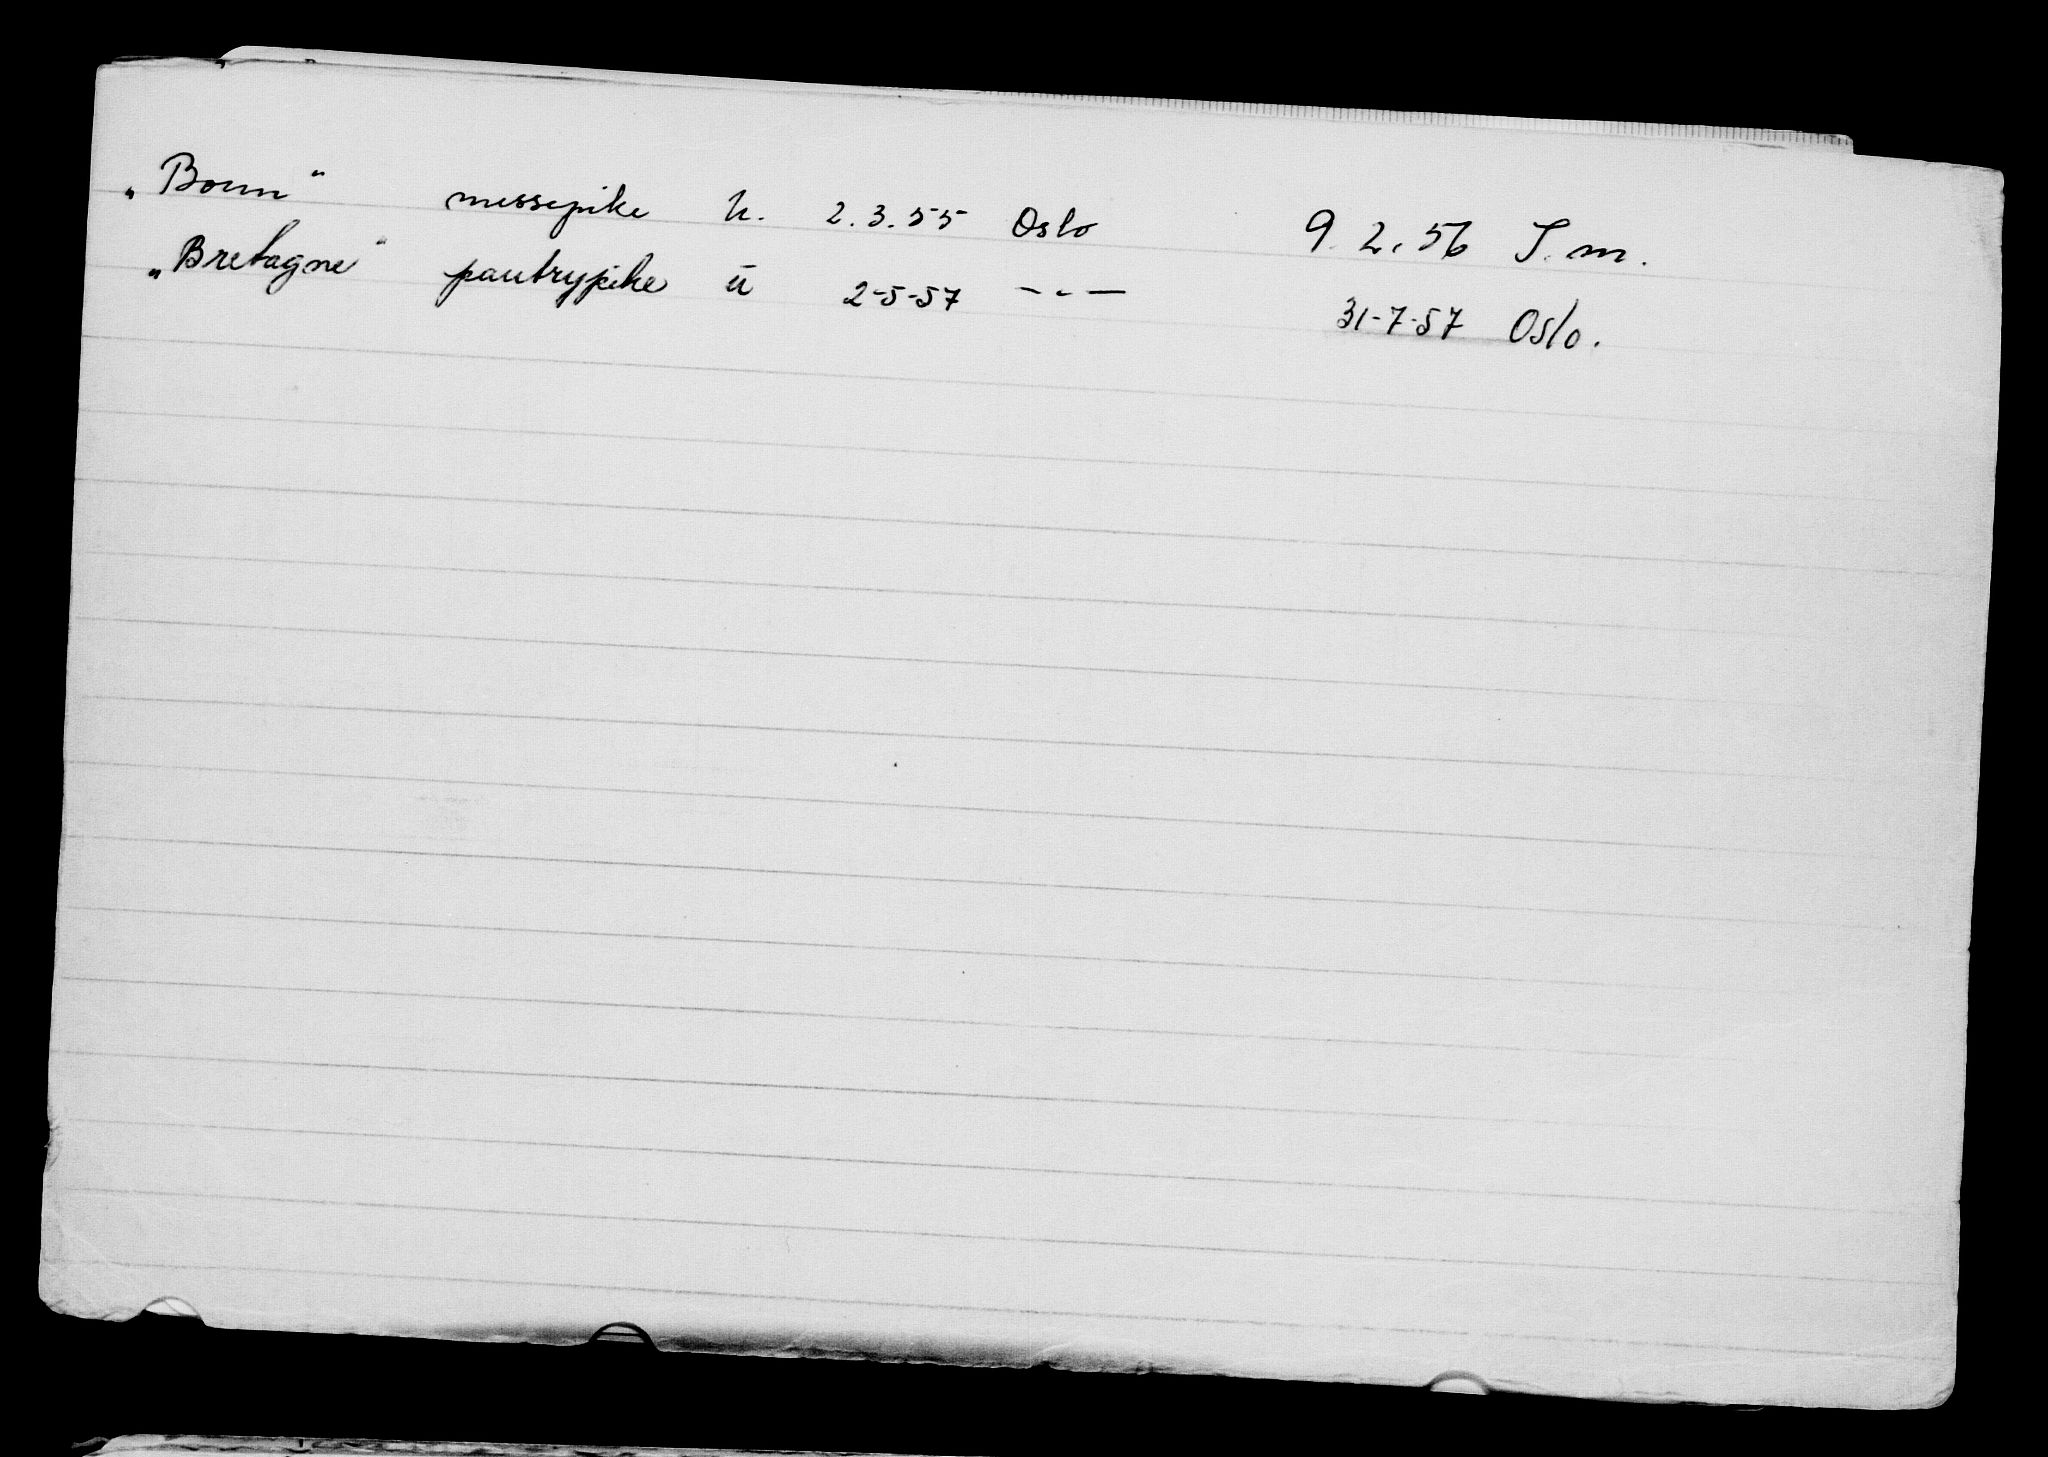 „Bomm“ messepike u. 2.3.55 Oslo 9.2.56 S.m.
„Bretagne“ pantrypike u 2-5-57 -"- 31-7-57 Oslo.